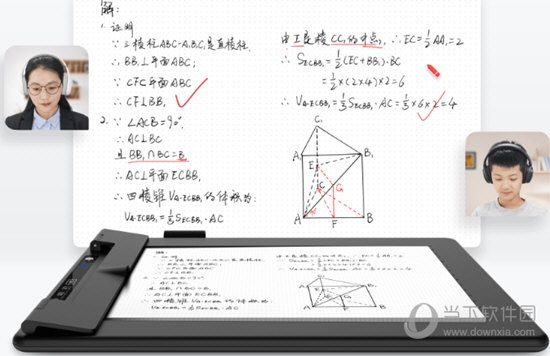 解:
1. 证明
∵ 三棱柱ABC-A₁B₁C₁是直棱柱,
∴ BB₁⊥平面ABC;
∵ CF⊂平面ABC
∴ CF⊥BB₁
2. ∵ ∠ACB=90°,
∴ AC⊥BC
且BB₁∩BC=B
∴ AC⊥平面ECBB₁
∴ 四棱锥VA-ECBB₁的体积为:
VA-ECBB₁=⅓SECBB₁·AC
由E是棱CC₁的中点, ∴EC=½AA₁=2
∴ SECBB₁=½(EC+BB₁)·BC
=½×(2×4)×2=6
∴ VA-ECBB₁=⅓SECBB₁·AC=⅓×6×2=4
C₁
A₁
B₁
E
C
G
A
F
B
当下软件园
www.downxia.com